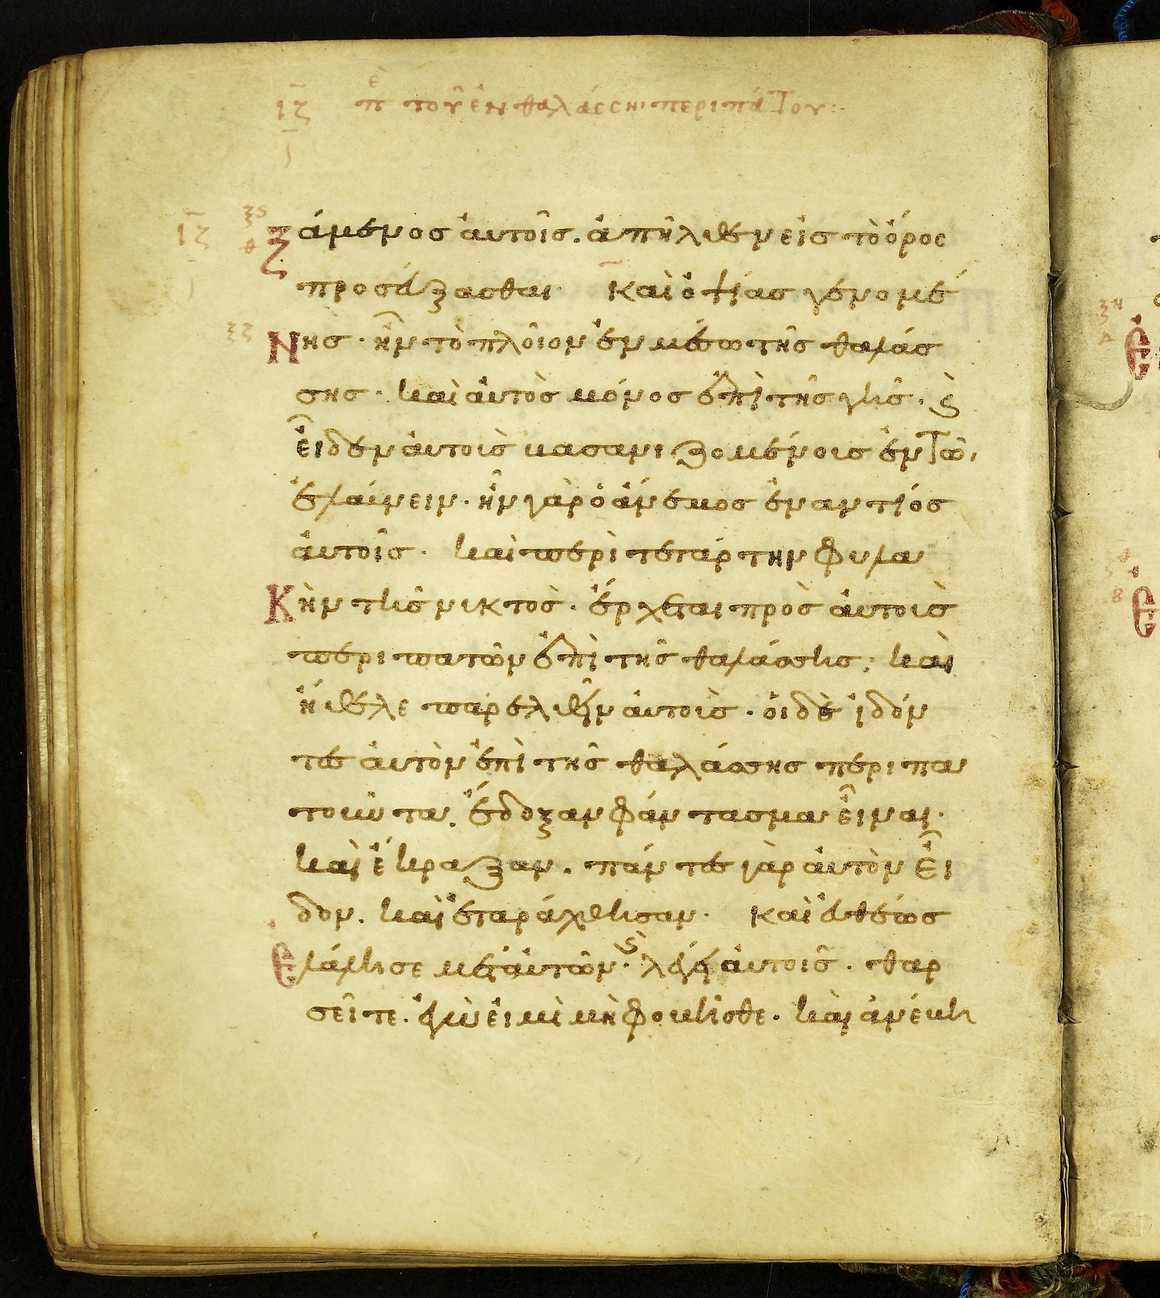 ιζ πε του εν θαλάσση περιπάτου:
ιζ ξς θ ξάμενος αυτοίς. απήλθεν εις το όρος
προσεύξασθαι· και οψίας γενομέ
ξζ Νης· ην το πλοίον εν μέσω της θαλάσ
σης· και αυτός μόνος επί της γης. ϗ
είδεν αυτούς βασανιζομένους εν τω
ελαύνειν· ην γαρ ο άνεμος εναντίος
αυτοίς· και περί τετάρτην φυλα
Κήν της νυκτός· έρχεται προς αυτούς
περιπατών επί της θαλάσσης· και
ήθελε παρελθείν αυτούς· οι δε ιδόν
τες αυτόν επί της θαλάσσης περιπα
τούντα. έδοξαν φάντασμα είναι·
και έκραξαν. πάντες γαρ αυτόν εί
δον. και εταράχθησαν· και ευθέως
Ελάλησε μετ αυτών· ϗ λέγει αυτοίς· θαρ
σείτε. εγώ ειμι μη φοβήσθε· και ανέβη